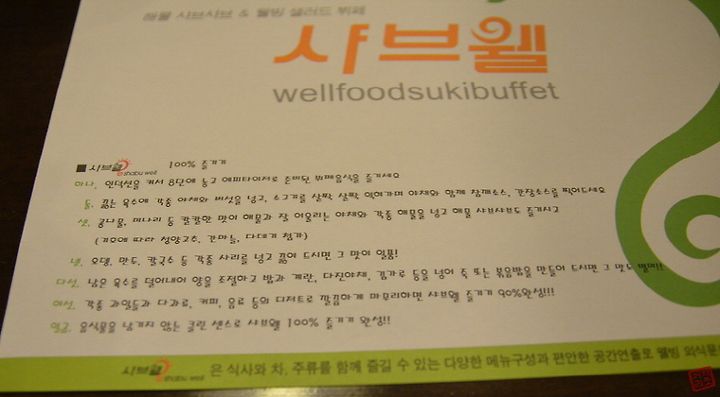 해물 샤브샤브 & 웰빙 샐러드 뷔페
샤브웰
wellfoodsukibuffet
■ 샤브웰 shabu well 100% 즐기기
하나, 인덕션을 켜서 8단에 놓고 에피타이저로 준비된 뷔페음식을 즐기세요
둘, 끓는 육수에 각종 야채와 버섯을 넣고, 소고기를 살짝 살짝 익혀가며 야채와 함께 참깨소스, 간장소스를 찍어드세요
셋, 콩나물, 미나리 등 칼칼한 맛이 해물과 잘 어울리는 야채와 각종 해물을 넣고 해물 샤브샤브도 즐기시고
(기호에 따라 청양고추, 간마늘, 다데기 첨가)
넷, 오뎅, 만두, 칼국수 등 각종 사리를 넣고 끓여 드시면 그 맛이 일품!
다섯, 남은 육수를 덜어내어 양을 조절하고 밥과 계란, 다진야채, 김가루 등을 넣어 죽 또는 볶음밥을 만들어 드시면 그 맛도 별미!!
여섯, 각종 과일들과 다과류, 커피, 음료 등의 디저트로 깔끔하게 마무리하면 샤브웰 즐기기 90%완성!!!
일곱, 음식물을 남기지 않는 클린 센스로 샤브웰 100% 즐기기 완성!!
샤브웰 shabu well 은 식사와 차, 주류를 함께 즐길 수 있는 다양한 메뉴구성과 편안한 공간연출로 웰빙 외식문